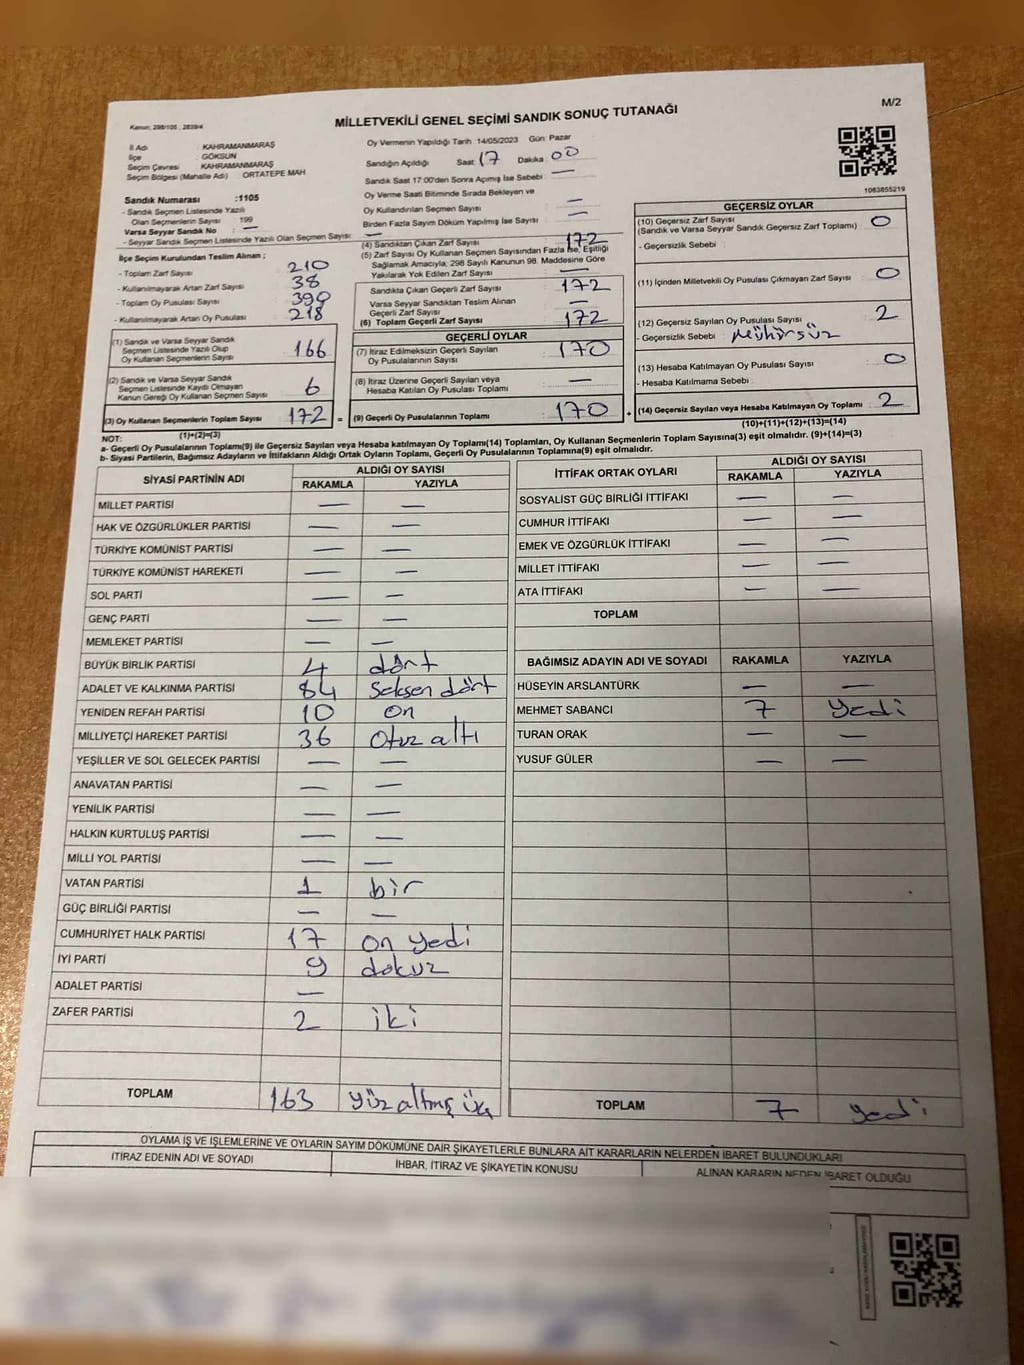 Kanun; 298/105 , 2839/4
MİLLETVEKİLİ GENEL SEÇİMİ SANDIK SONUÇ TUTANAĞI
M/2
İl Adı KAHRAMANMARAŞ
İlçe GÖKSUN
Seçim Çevrasi KAHRAMANMARAŞ
Seçim Bölgesi (Mahalle Adı) ORTATEPE MAH
Sandık Numarası :1105
- Sandık Seçmen Listesinde Yazılı
Olan Seçmenlerin Sayısı : 199
Varsa Seyyar Sandık No : —
- Seyyar Sandık Seçmen Listesinde Yazılı Olan Seçmen Sayısı : —
İlçe Seçim Kurulundan Teslim Alınan ;
- Toplam Zarf Sayısı : 210
- Kullanılmayarak Artan Zarf Sayısı : 38
- Toplam Oy Pusulası Sayısı : 390
- Kullanılmayarak Artan Oy Pusulası : 218
(1) Sandık ve Varsa Seyyar Sandık
Seçmen Listesinde Yazılı Olup
Oy Kullanan Seçmenlerin Sayısı : 166
(2) Sandık ve Varsa Seyyar Sandık
Seçmen Listesinde Kayıtlı Olmayan
Kanun Gereği Oy Kullanan Seçmen Sayısı : 6
(3) Oy Kullanan Seçmenlerin Toplam Sayısı : 172 =
(1)+(2)=(3)
Oy Vermenin Yapıldığı Tarih 14/05/2023 Gün: Pazar
Sandığın Açıldığı Saat 17 Dakika 00
Sandık Saat 17:00'den Sonra Açımış İse Sebebi : —
Oy Verme Saati Bitiminde Sırada Bekleyen ve
Oy Kullandırılan Seçmen Sayısı : —
Birden Fazla Sayım Döküm Yapılmış İse Sayısı : —
(4) Sandıktan Çıkan Zarf Sayısı : 172
(5) Zarf Sayısı Oy Kullanan Seçmen Sayısından Fazla İse, Eşitliği
Sağlamak Amacıyla; 298 Sayılı Kanunun 98. Maddesine Göre
Yakılarak Yok Edilen Zarf Sayısı : —
Sandıkta Çıkan Geçerli Zarf Sayısı : 172
Varsa Seyyar Sandıktan Teslim Alınan
Geçerli Zarf Sayısı : —
(6) Toplam Geçerli Zarf Sayısı : 172
GEÇERLİ OYLAR
(7) İtiraz Edilmeksizin Geçerli Sayılan
Oy Pusulalarının Sayısı : 170
(8) İtiraz Üzerine Geçerli Sayılan veya
Hesaba Katılan Oy Pusulası Toplamı : —
(9) Geçerli Oy Pusulalarının Toplamı : 170 +
1083855219
GEÇERSİZ OYLAR
(10) Geçersiz Zarf Sayısı : 0
(Sandık ve Varsa Seyyar Sandık Geçersiz Zarf Toplamı)
- Geçersizlik Sebebi :
(11) İçinden Milletvekili Oy Pusulası Çıkmayan Zarf Sayısı : 0
(12) Geçersiz Sayılan Oy Pusulası Sayısı : 2
- Geçersizlik Sebebi : Mühürsüz
(13) Hesaba Katılmayan Oy Pusulası Sayısı : 0
- Hesaba Katılmama Sebebi :
(14) Geçersiz Sayılan veya Hesaba Katılmayan Oy Toplamı : 2
(10)+(11)+(12)+(13)=(14)
NOT:
a- Geçerli Oy Pusulalarının Toplamı(9) ile Geçersiz Sayılan veya Hesaba katılmayan Oy Toplamı(14) Toplamları, Oy Kullanan Seçmenlerin Toplam Sayısına(3) eşit olmalıdır. (9)+(14)=(3)
b- Siyasi Partilerin, Bağımsız Adayların ve İttifakların Aldığı Ortak Oyların Toplamı, Geçerli Oy Pusulalarının Toplamına(9) eşit olmalıdır.
SİYASİ PARTİNİN ADI ALDIĞI OY SAYISI
RAKAMLA YAZIYLA
MİLLET PARTİSİ — —
HAK VE ÖZGÜRLÜKLER PARTİSİ — —
TÜRKİYE KOMÜNİST PARTİSİ — —
TÜRKİYE KOMÜNİST HAREKETİ — —
SOL PARTİ — —
GENÇ PARTİ — —
MEMLEKET PARTİSİ — —
BÜYÜK BİRLİK PARTİSİ 4 dört
ADALET VE KALKINMA PARTİSİ 84 Seksen dört
YENİDEN REFAH PARTİSİ 10 on
MİLLİYETÇİ HAREKET PARTİSİ 36 Otuz altı
YEŞİLLER VE SOL GELECEK PARTİSİ — —
ANAVATAN PARTİSİ — —
YENİLİK PARTİSİ — —
HALKIN KURTULUŞ PARTİSİ — —
MİLLİ YOL PARTİSİ — —
VATAN PARTİSİ 1 bir
GÜÇ BİRLİĞİ PARTİSİ — —
CUMHURİYET HALK PARTİSİ 17 on yedi
İYİ PARTİ 9 dokuz
ADALET PARTİSİ —
ZAFER PARTİSİ 2 iki
TOPLAM 163 yüz altmış üç
İTTİFAK ORTAK OYLARI ALDIĞI OY SAYISI
RAKAMLA YAZIYLA
SOSYALİST GÜÇ BİRLİĞİ İTTİFAKI — —
CUMHUR İTTİFAKI — —
EMEK VE ÖZGÜRLÜK İTTİFAKI — —
MİLLET İTTİFAKI — —
ATA İTTİFAKI — —
TOPLAM
BAĞIMSIZ ADAYIN ADI VE SOYADI RAKAMLA YAZIYLA
HÜSEYİN ARSLANTÜRK — —
MEHMET SABANCI 7 yedi
TURAN ORAK — —
YUSUF GÜLER — —
TOPLAM 7 yedi
OYLAMA İŞ VE İŞLEMLERİNE VE OYLARIN SAYIM DÖKÜMÜNE DAİR ŞİKAYETLERLE BUNLARA AİT KARARLARIN NELERDEN İBARET BULUNDUKLARI
İTİRAZ EDENİN ADI VE SOYADI İHBAR, İTİRAZ VE ŞİKAYETİN KONUSU ALINAN KARARIN NEDEN İBARET OLDUĞU